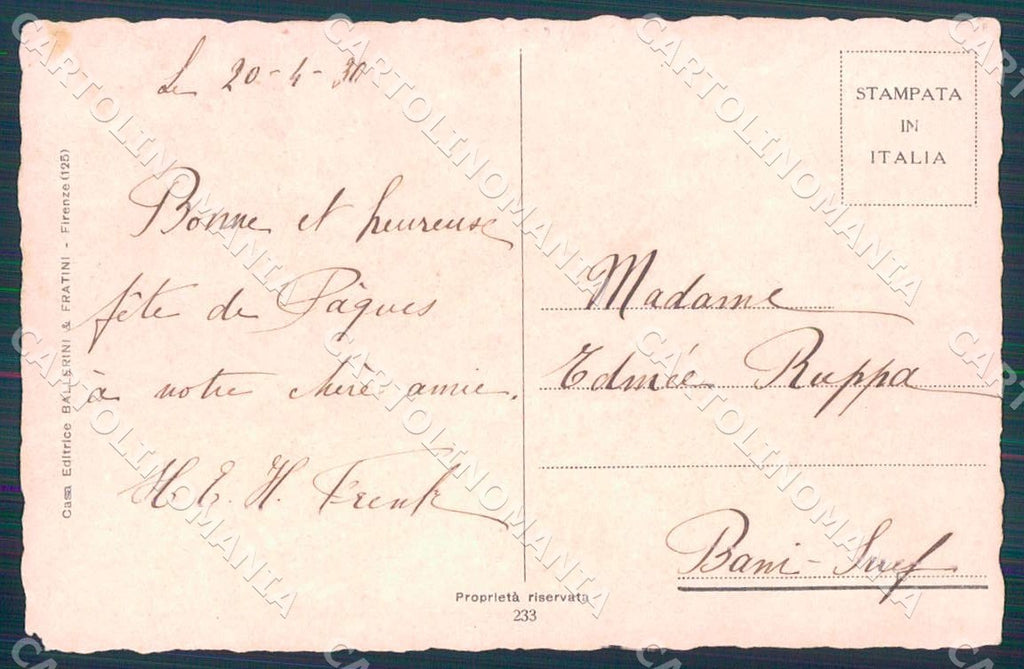 Le 20-4-30
Bonne et heureuse
fête de Pâques
à notre chère amie.
H. E. H. Frenk
Casa Editrice BALLERINI & FRATINI - Firenze (125)
STAMPATA
IN
ITALIA
Madame
Edmée Ruppa
Bani-Suef
Proprietà riservata
233
CARTOLINOMANIA